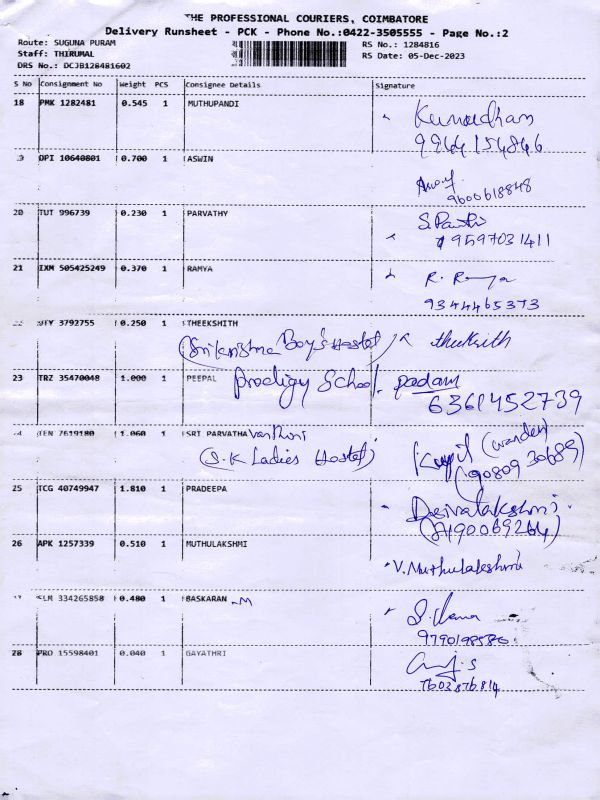 THE PROFESSIONAL COURIERS, COIMBATORE
Delivery Runsheet - PCK - Phone No.:0422-3505555 - Page No.:2
Route: SUGUNA PURAM
Staff: THIRUMAL
DRS No.: DCJB128481602
RS No.: 1284816
RS Date: 05-Dec-2023
S No Consignment No Weight PCS Consignee Details Signature
18 PMK 1282481 0.545 1 MUTHUPANDI
9964154846
OPI 10640801 0.700 1 ASWIN
9600618848
20 TUT 996739 0.230 1 PARVATHY
9597031411
21 IXM 505425249 0.370 1 RAMYA R. Ramya
9344465373
3792755 0.250 1 THEEKSHITH
(Srikrishna Boy's Hostel) theekrith
23 TRZ 35470048 1.000 1 PEEPAL Prodigy School padam
6361452739
TEN 7619180 1.060 1 SRI PARVATHA Varthini
(S.K Ladies Hostel) (warden)
(9080930689)
25 TCG 40749947 1.810 1 PRADEEPA Deivalakshmi
26 APK 1257339 0.510 1 MUTHULAKSHMI
V. Muthulakshmi
334265858 0.480 1 BASKARAN -M
9790198580
28 PRO 15598401 0.040 1 GAYATHRI
7603876814